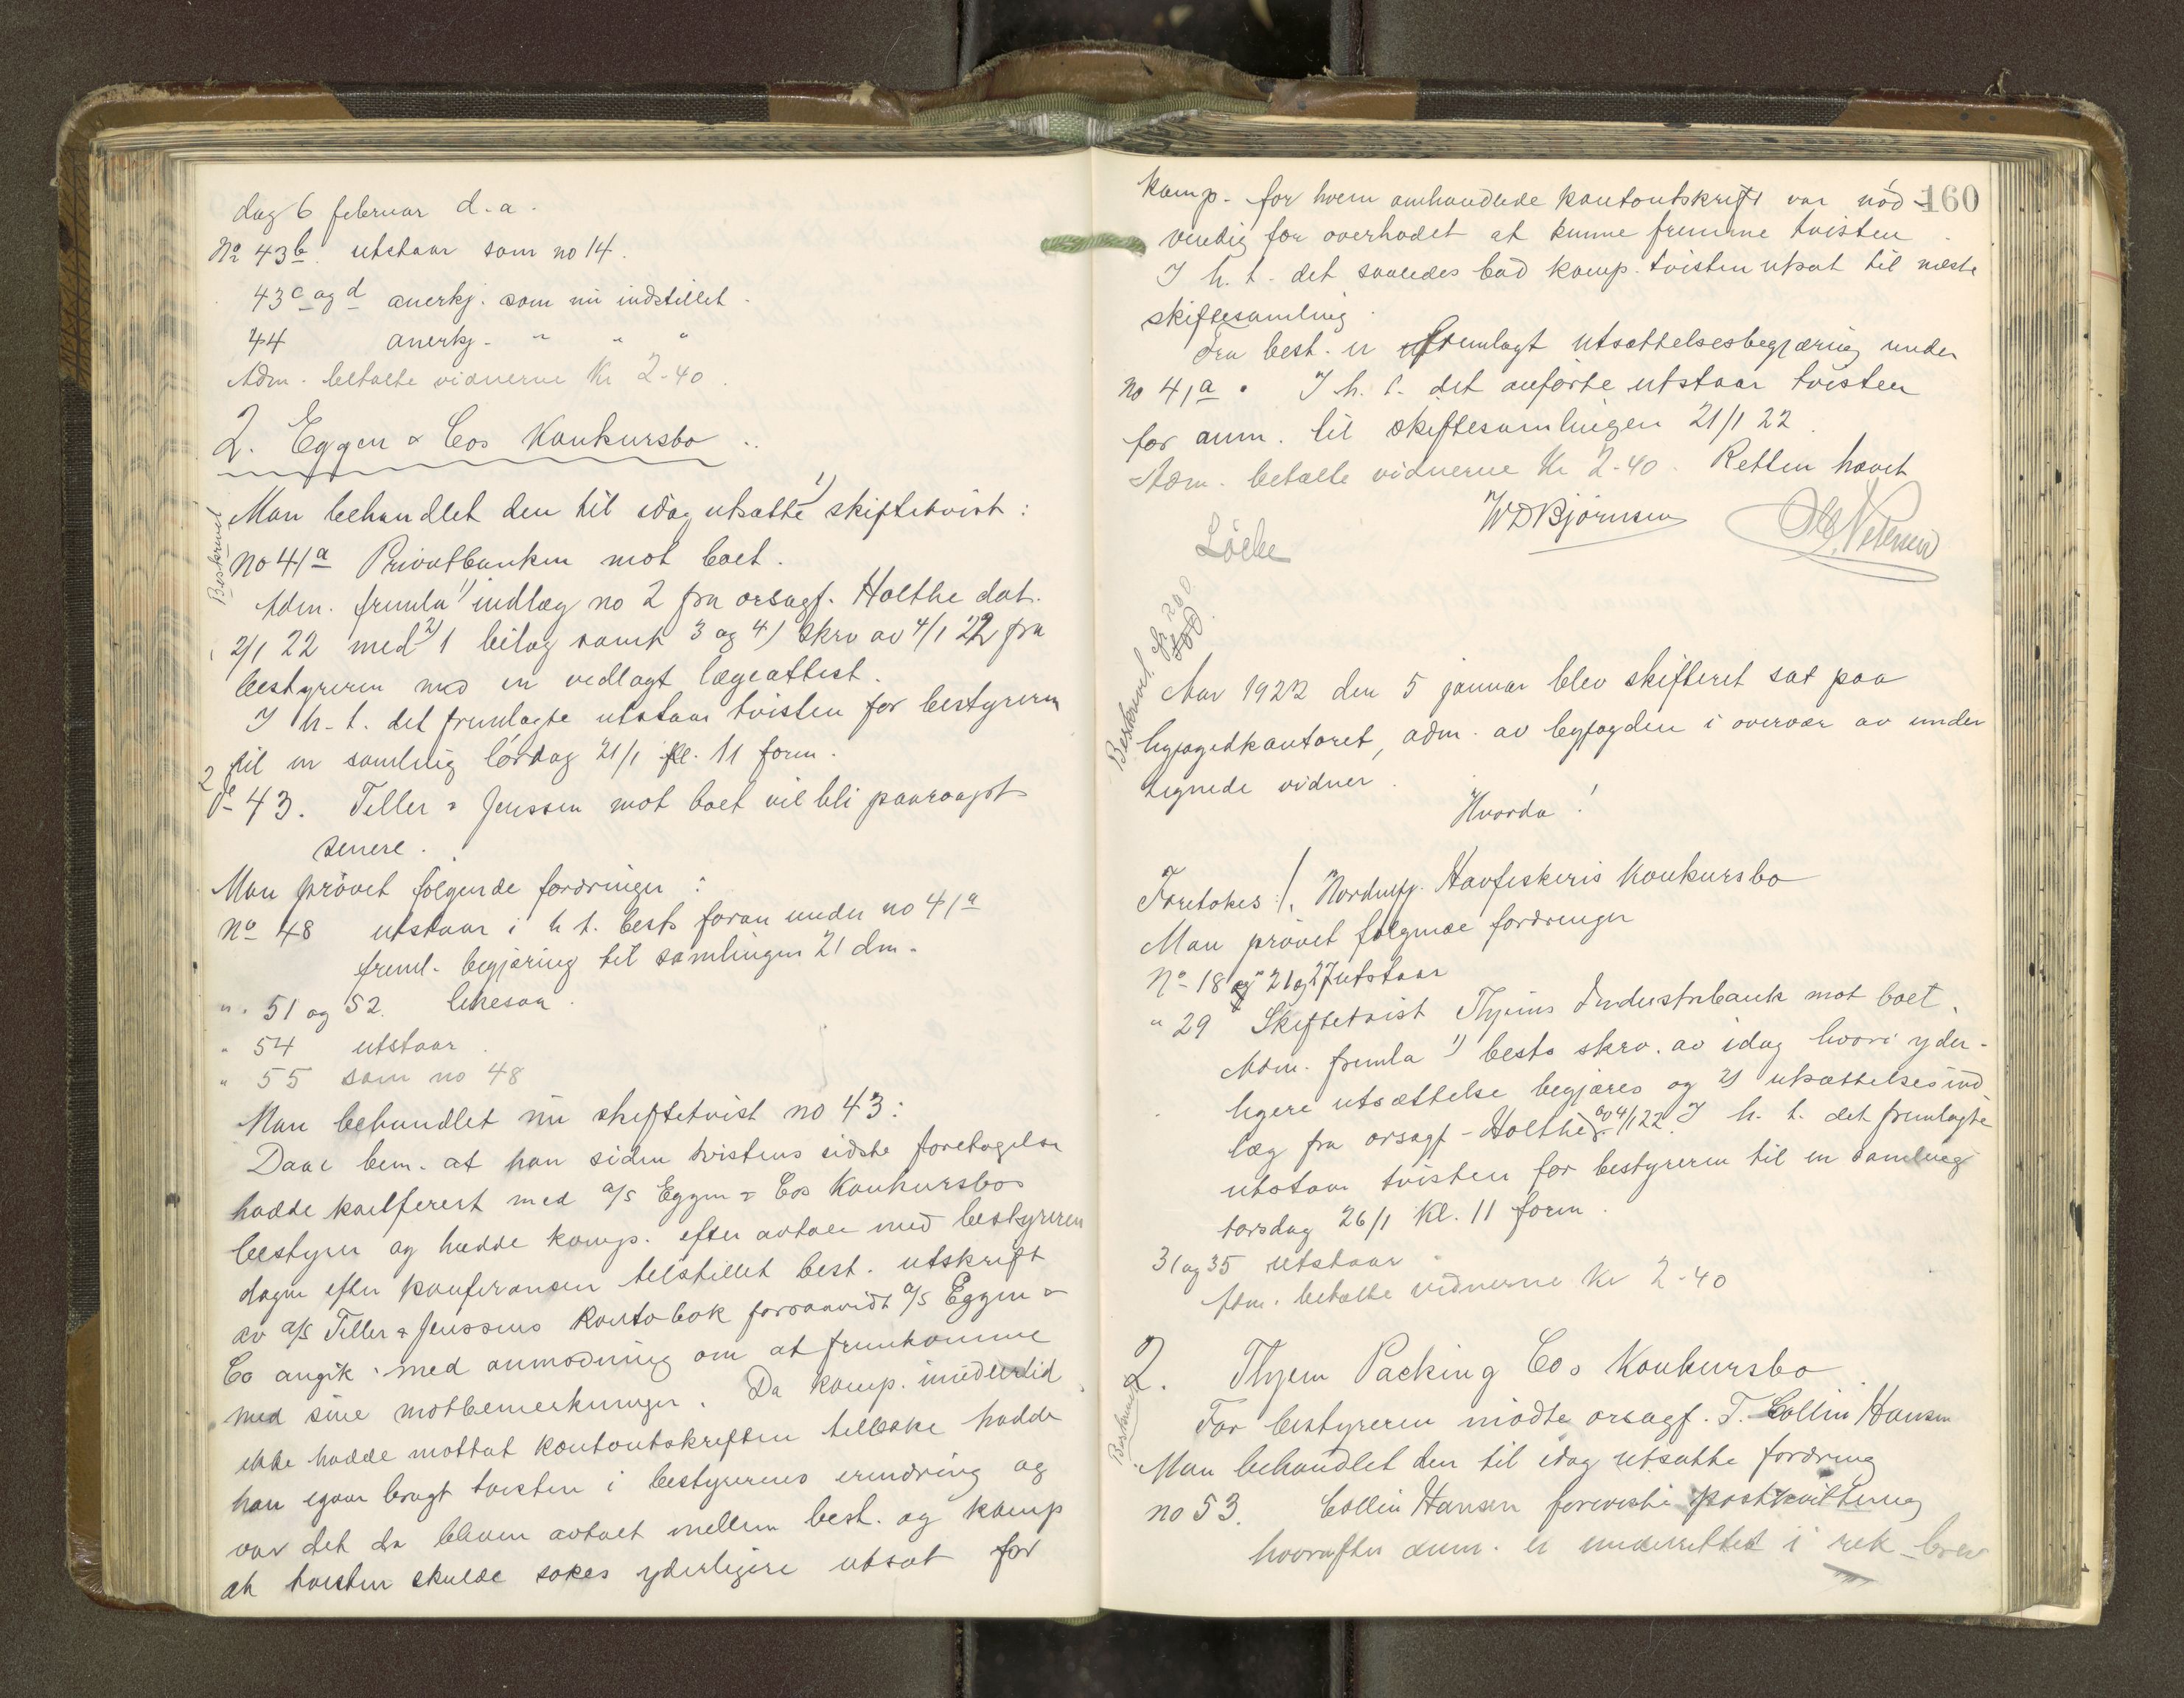 dag 6 februar d. a.
No 43b. utstaar som no 14.
43c og d anerkj. som nu indstillet.
44 anerkj. " " "
Adm. betalte vidnerne Kr 2-40.
2. Eggen & Cos Konkursbo
Beskrevet
Man behandlet den til idag utsatte 1) skiftetvist:
No 41a Privatbanken mot boet.
Adm. fremla 1) indlæg no 2 fra orsagf. Holthe dat.
2/1 22 med 2) 1 bilag samt 3 og 4) skrv av 4/1 22 fra
bestyreren med en vedlagt lægeattest.
I h. t. det fremlagte utstaar tvisten for bestyreren
til en samling lørdag 21/1 kl. 11 form.
43. Teller & Jenssen mot boet vil bli paaropt
senere.
Man prøvet følgende fordringer:
No 48 utstaar i h t. bests foran under no 41a
freml. begjæring til samlingen 21 dm.
" 51 og 52. likesaa.
" 54 utstaar.
" 55 som no 48
Man behandlet nu skiftetvist no 43:
Daae bem. at han siden tvistens sidste foretagelse
hadde konferert med a/s Eggen & Cos Konkursbos
bestyrer og hadde komp. efter avtale med bestyreren
dagen efter konferansen tilstillet best. utskrift
av a/s Teller & Jenssens kontobok forsaavidt a/s Eggen &
Co angik med anmodning om at fremkomme
med sine motbemerkninger. Da komp. imidlertid
ikke hadde mottat kontoutskriften tilbake hadde
han igaar bragt tvisten i bestyrerens erindring og
var det da bleven avtalt mellem best. og komp
at tvisten skulde søkes yderligere utsat for
160
komp. for hvem omhandlede kontoutskrift var nød-
vendig for overhodet at kunne fremme tvisten.
I h. t. det saaledes bad komp. tvisten utsat til næste
skiftesamling.
Fra best. er fremlagt utsættelsesbegjæring under
no 41a. I h. t. det anførte utstaar tvisten
for anm. til skiftesamlingen 21/1 22.
Adm. betalte vidnerne Kr 2-40. Retten hævet
WDBjørnsen
Beskrevet.
Aar 1922 den 5 januar blev skifteret sat paa
byfogedkontoret, adm. av byfogden i overvær av under
tegnede vidner.
Hvorda!
Foretokes: 1. Nordenfj. Havfiskeris Konkursbo
Man prøvet følgende fordringer
No 18 og 21 og 27 utstaar
" 29 Skiftetvist Thjems Industribank mot boet.
Adm. fremla 1) bests skrv. av idag hvori yder-
ligere utsættelse begjæres og 2) utsættelsesind
læg fra orsagf. Holthe av 4/1 22. I h. t. det fremlagte
utstaar tvisten for bestyreren til en samling
torsdag 26/1 kl. 11 form.
31 og 35 utstaar.
Adm. betalte vidnerne Kr 2-40
2. Thjem Packing Cos Konkursbo.
Beskrevet
For bestyreren mødte orsagf. T. Collin Hansen
Man behandlet den til idag utsatte fordring
no 53. Collin Hansen foreviste postkvittering
hvorefter anm. er underrettet i rek. brev